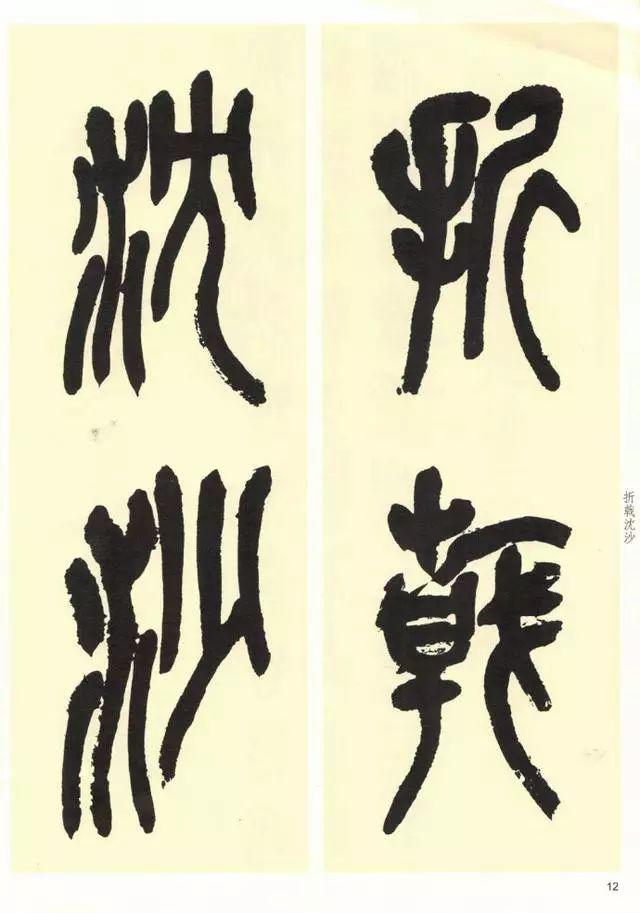 折戟
沈沙
折戟沈沙
12